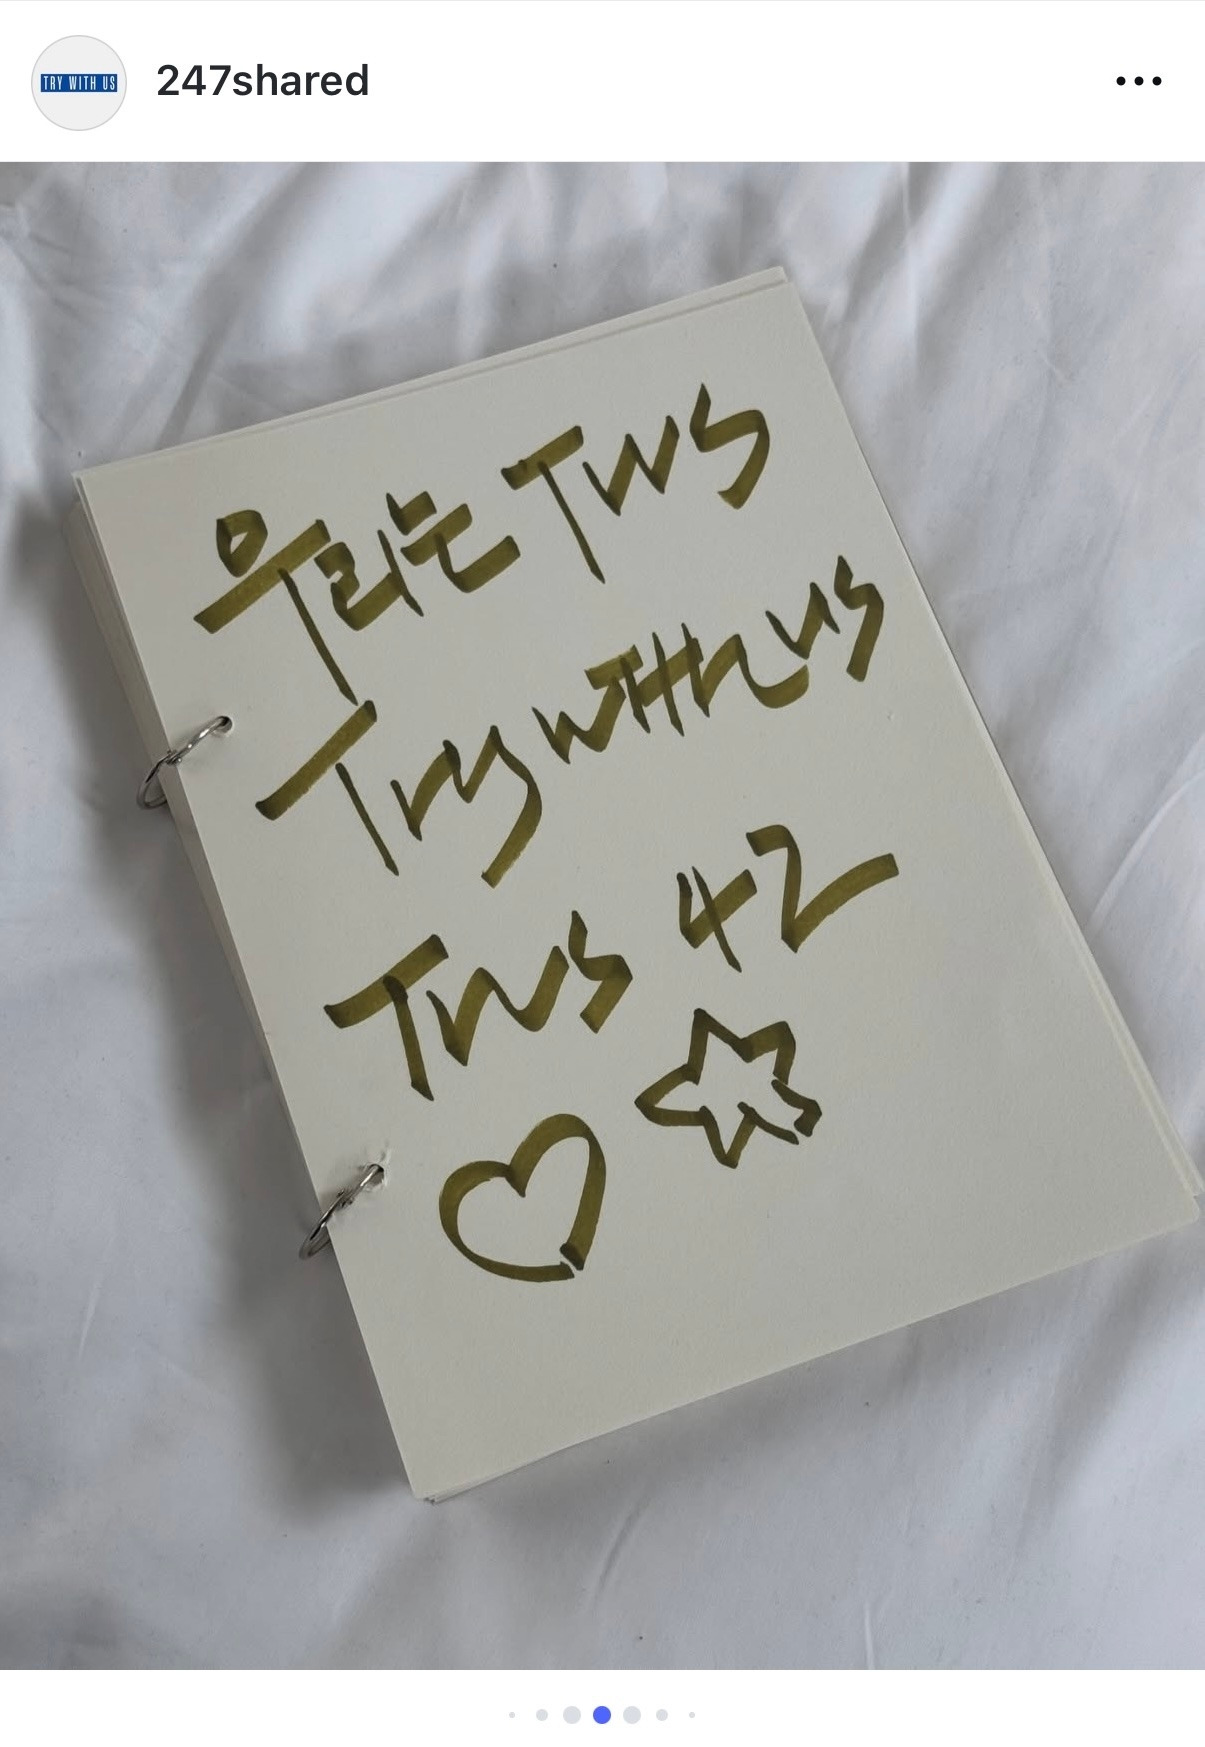 TRY WITH US
247shared
우리는 TWS
Try with us
TWS 42